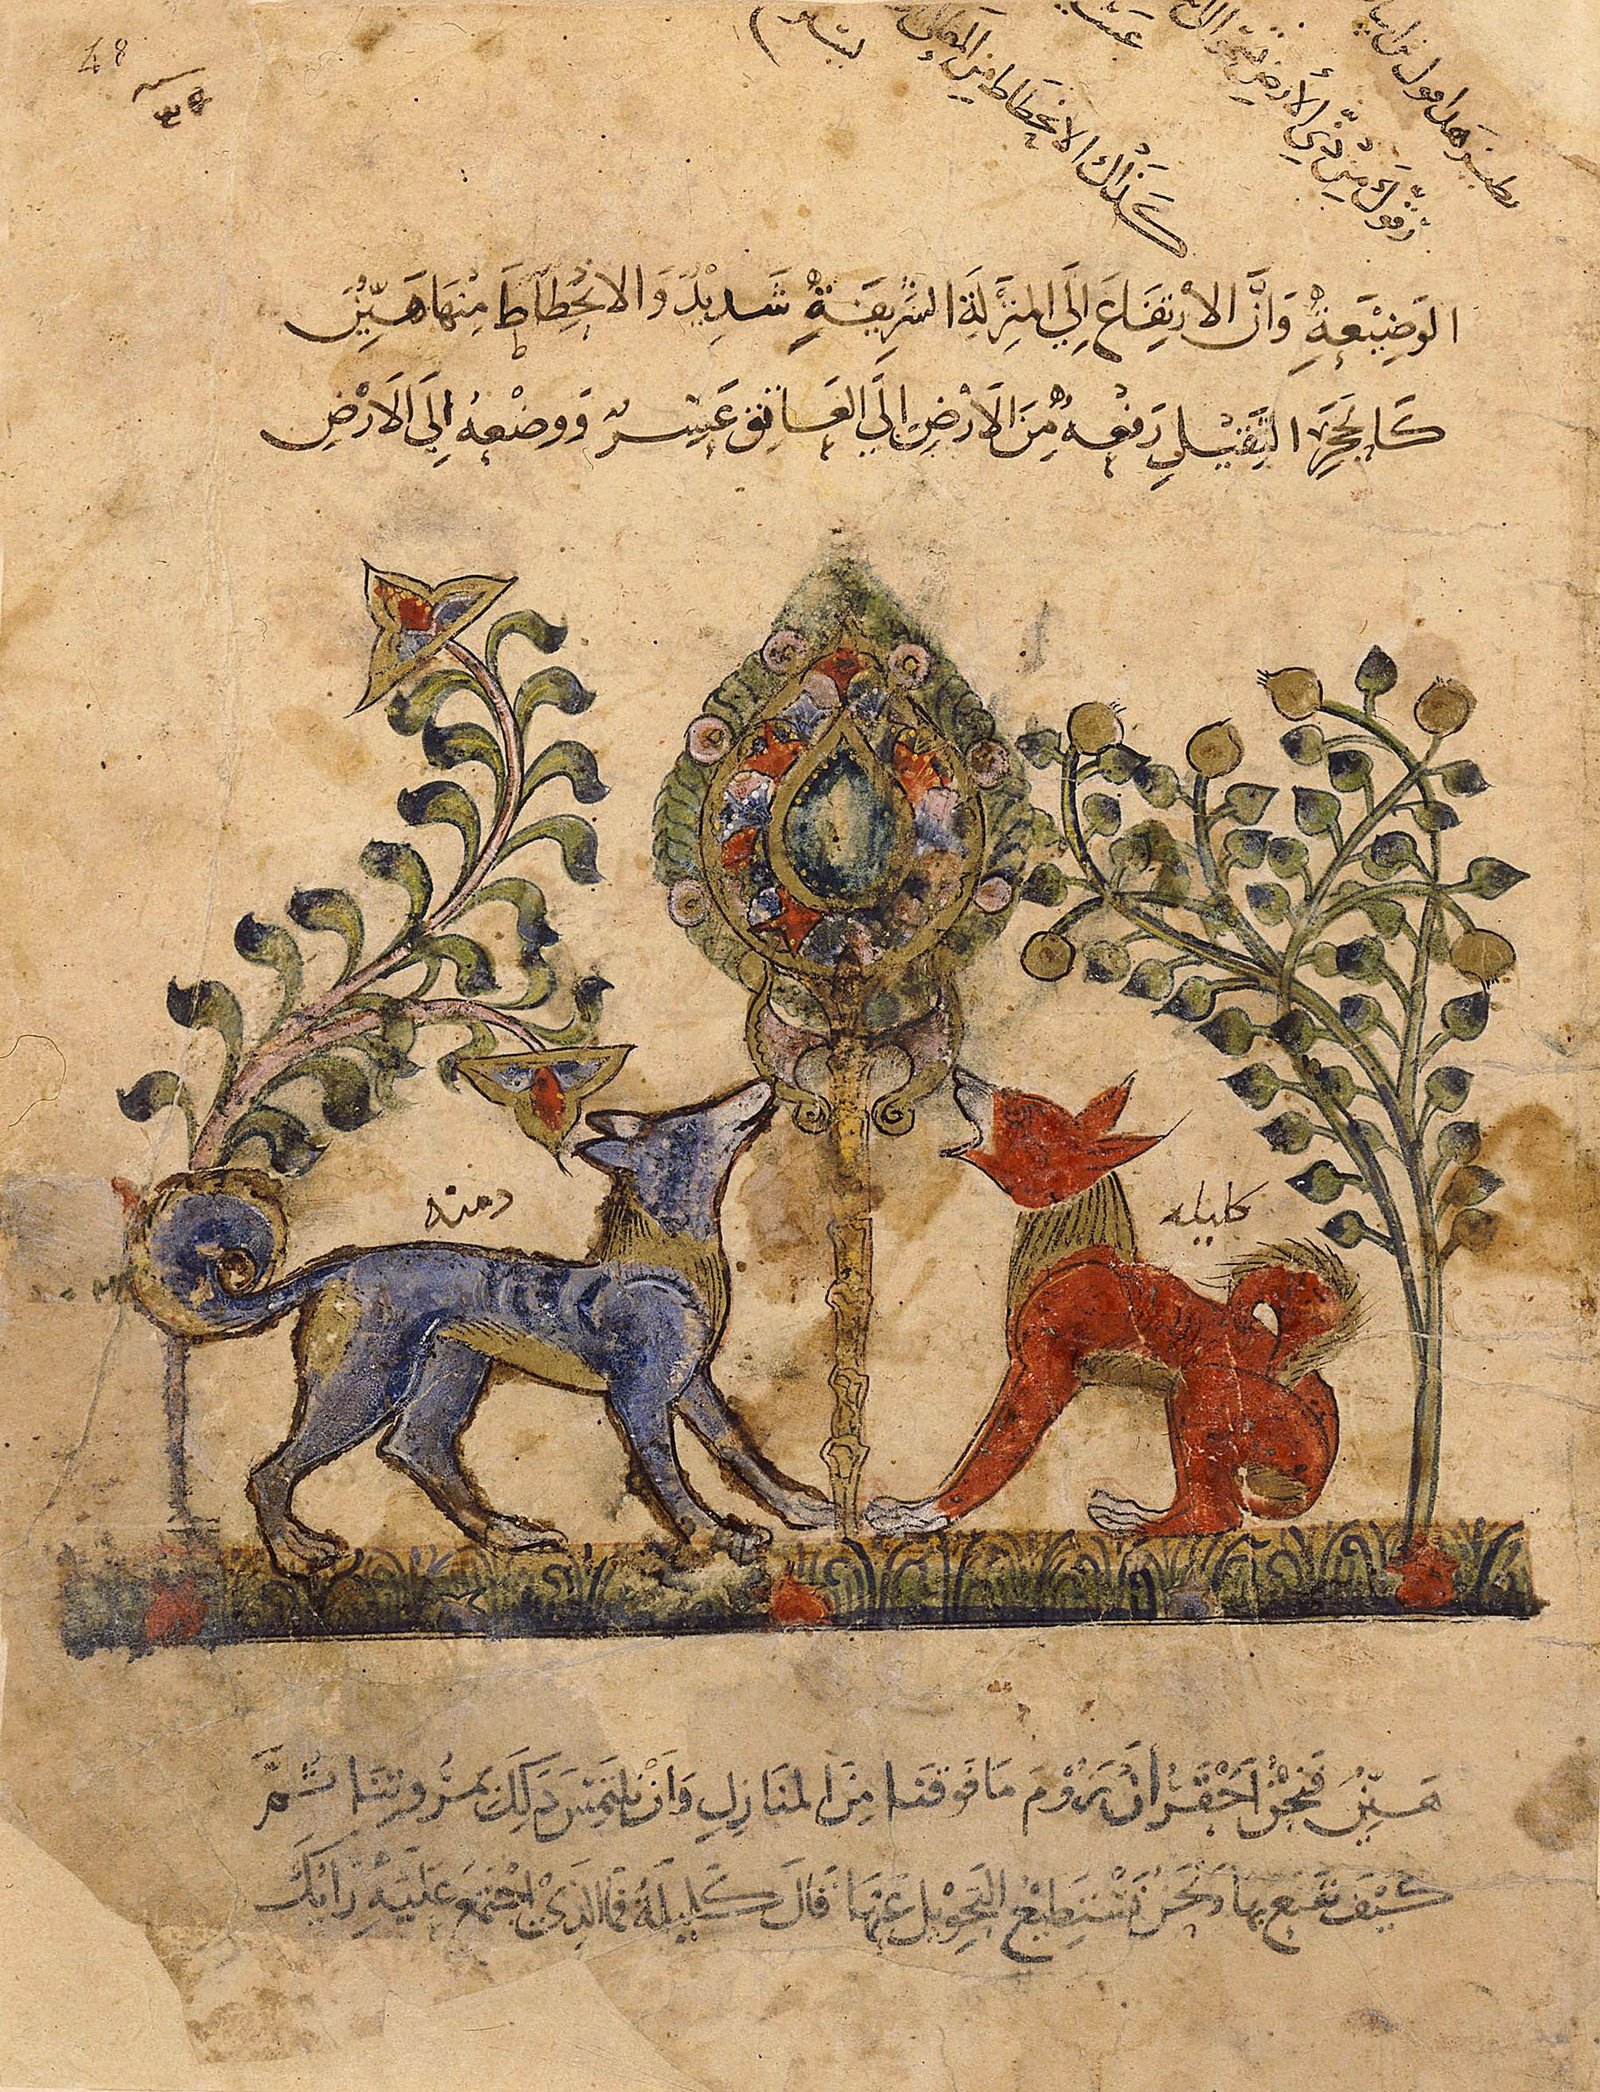 48
٣٥
كذلك الانحطاط من
الوَضِيْعَةِ وَانَّ الارْتِفَاعَ اِلَي المنزِلَةِ الشَرِيفَةِ شَدِيْدٌ وَالانْحِطَاط مِنْهَا هَيّنٌ
كَالحَجَرِ الثَّقِيْلِ رَفْعهُ مِنَ الاَرْضِ اِلَي العَاتِق عَسِرٌ وَوضْعهُ اِلَي الاَرْضِ
دمنه
كليله
هَيّنٌ فَنَحْنُ اَحْقَرُ اَنْ نَرُوْمَ مَا فَوقنَا مِنَ المنَازِلِ وَاَنْ نلتَمِسَ ذَلِكَ بمُرُوتِنَا ثُمَّ
كَيْفَ نقنَع بهَا وَنحنُ نَسْتَطِيْعُ التحوِيل عَنهَا قَالَ كَلِيْلَةُ فَمَا الَذِيْ اجْتَمَعَ عَلَيْهِ رَايكَ